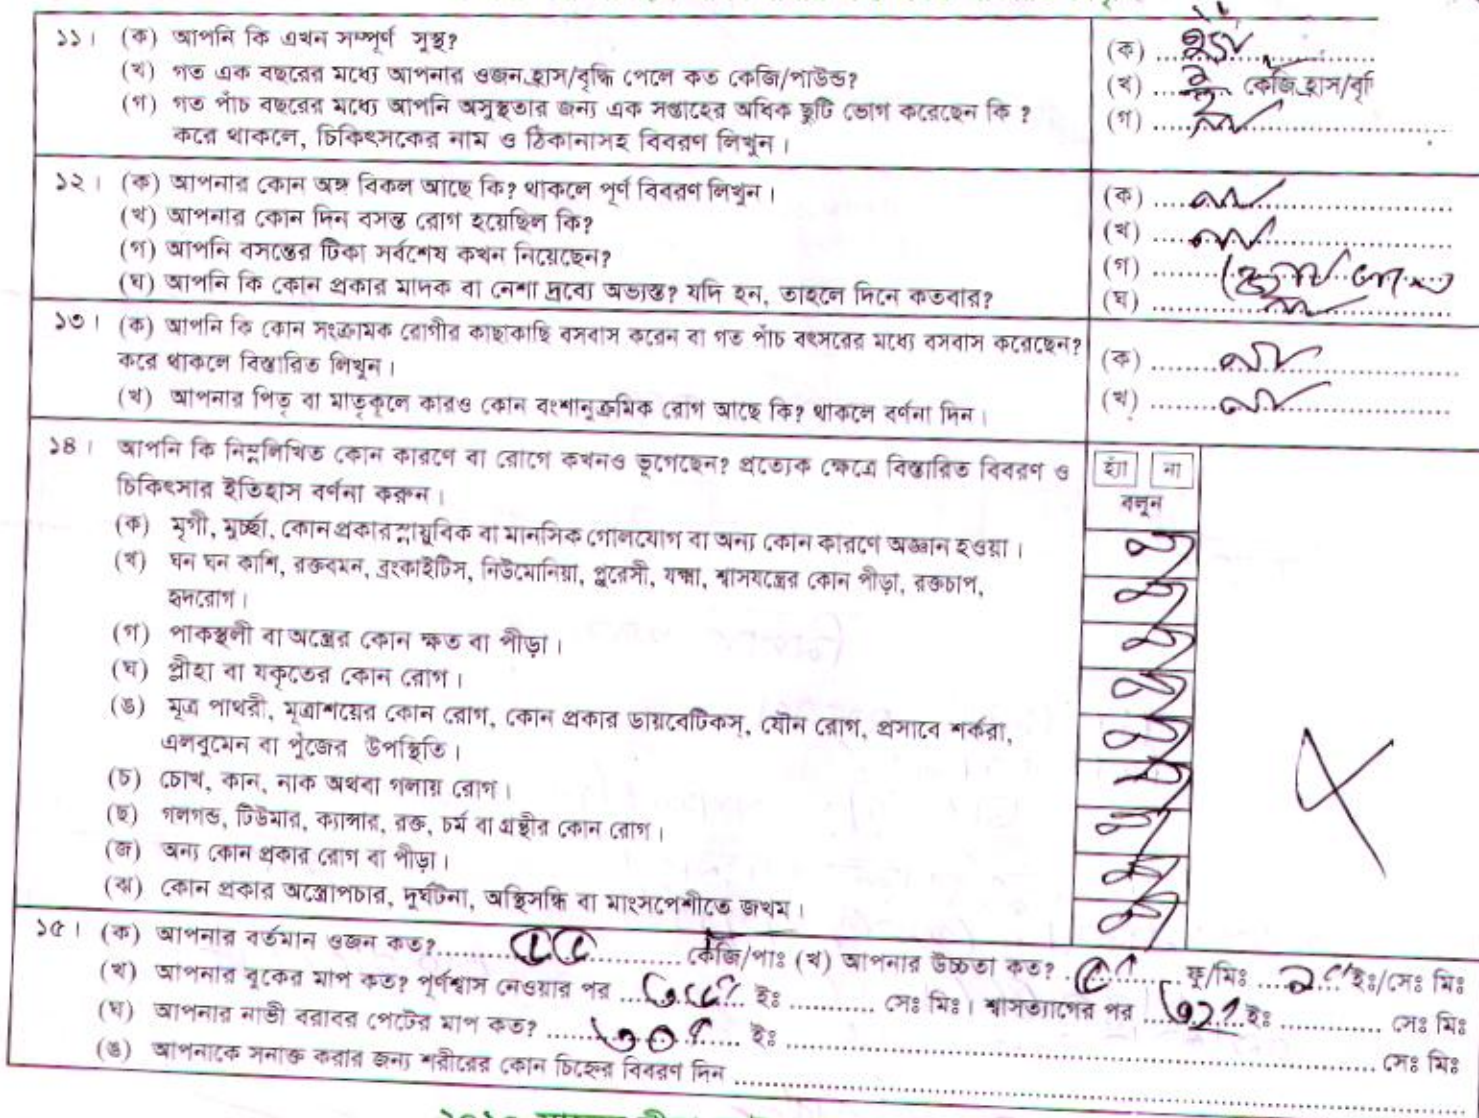 ১১। (ক) আপনি কি এখন সম্পূর্ণ সুস্থ?
(ক) ..... হ্যাঁ
(খ) গত এক বছরের মধ্যে আপনার ওজন হ্রাস/বৃদ্ধি পেলে কত কেজি/পাউন্ড?
(খ) ..... কেজি হ্রাস/বৃ
(গ) গত পাঁচ বছরের মধ্যে আপনি অসুস্থতার জন্য এক সপ্তাহের অধিক ছুটি ভোগ করেছেন কি ?
(গ) ..... না
করে থাকলে, চিকিৎসকের নাম ও ঠিকানাসহ বিবরণ লিখুন।
১২। (ক) আপনার কোন অঙ্গ বিকল আছে কি? থাকলে পূর্ণ বিবরণ লিখুন।
(ক) .... না
(খ) আপনার কোন দিন বসন্ত রোগ হয়েছিল কি?
(খ) .... না
(গ) আপনি বসন্তের টিকা সর্বশেষ কখন নিয়েছেন?
(গ) ........
(ঘ) আপনি কি কোন প্রকার মাদক বা নেশা দ্রব্যে অভ্যস্ত? যদি হন, তাহলে দিনে কতবার?
(ঘ) ........ না
১৩। (ক) আপনি কি কোন সংক্রামক রোগীর কাছাকাছি বসবাস করেন বা গত পাঁচ বৎসরের মধ্যে বসবাস করেছেন?
করে থাকলে বিস্তারিত লিখুন।
(ক) ........ না
(খ) আপনার পিতৃ বা মাতৃকূলে কারও কোন বংশানুক্রমিক রোগ আছে কি? থাকলে বর্ণনা দিন।
(খ) ........ না
১৪। আপনি কি নিম্নলিখিত কোন কারণে বা রোগে কখনও ভূগেছেন? প্রত্যেক ক্ষেত্রে বিস্তারিত বিবরণ ও
হ্যাঁ না
চিকিৎসার ইতিহাস বর্ণনা করুন।
বলুন
(ক) মৃগী, মুর্চ্ছা, কোন প্রকার স্নায়ুবিক বা মানসিক গোলযোগ বা অন্য কোন কারণে অজ্ঞান হওয়া।
না
(খ) ঘন ঘন কাশি, রক্তবমন, ব্রংকাইটিস, নিউমোনিয়া, প্লুরেসী, যক্ষ্মা, শ্বাসযন্ত্রের কোন পীড়া, রক্তচাপ,
না
হৃদরোগ।
(গ) পাকস্থলী বা অন্ত্রের কোন ক্ষত বা পীড়া।
না
(ঘ) প্লীহা বা যকৃতের কোন রোগ।
না
(ঙ) মূত্র পাথরী, মূত্রাশয়ের কোন রোগ, কোন প্রকার ডায়বেটিকস্, যৌন রোগ, প্রসাবে শর্করা,
না
এলবুমেন বা পুঁজের উপস্থিতি।
(চ) চোখ, কান, নাক অথবা গলায় রোগ।
না
(ছ) গলগন্ড, টিউমার, ক্যান্সার, রক্ত, চর্ম বা গ্রন্থীর কোন রোগ।
না
(জ) অন্য কোন প্রকার রোগ বা পীড়া।
না
(ঝ) কোন প্রকার অস্ত্রোপচার, দুর্ঘটনা, অস্থিসন্ধি বা মাংসপেশীতে জখম।
না
১৫। (ক) আপনার বর্তমান ওজন কত? ........ ৫৫ ........ কেজি/পাঃ (খ) আপনার উচ্চতা কত? . ৫' ....... ফু/মিঃ ... ২" ইঃ/সেঃ মিঃ
(খ) আপনার বুকের মাপ কত? পূর্ণশ্বাস নেওয়ার পর ... ইঃ ........... সেঃ মিঃ। শ্বাসত্যাগের পর ... ৩২ ইঃ ............. সেঃ মিঃ
(ঘ) আপনার নাভী বরাবর পেটের মাপ কত? ........ ৩০ ..... ইঃ ............................ সেঃ মিঃ
(ঙ) আপনাকে সনাক্ত করার জন্য শরীরের কোন চিহ্নের বিবরণ দিন ............................